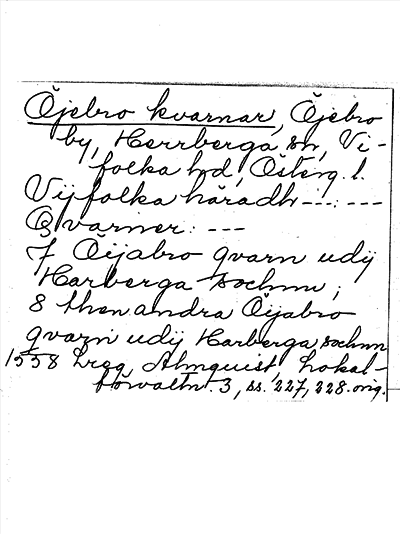 Öjebro kvarnar, Öjebro
by, Herrberga sn, Vi-
folka hd, Österg. l.
Vijfolka häradh --- ---
Qvarner: ---
7 Öijabro qvarn udij
Harberga sochnn;
8 then andra Öijabro
qvarn udij Harberga sochnn
1558 Almquist, Lokal-
förvaltn. 3, ss. 227, 228. orig.